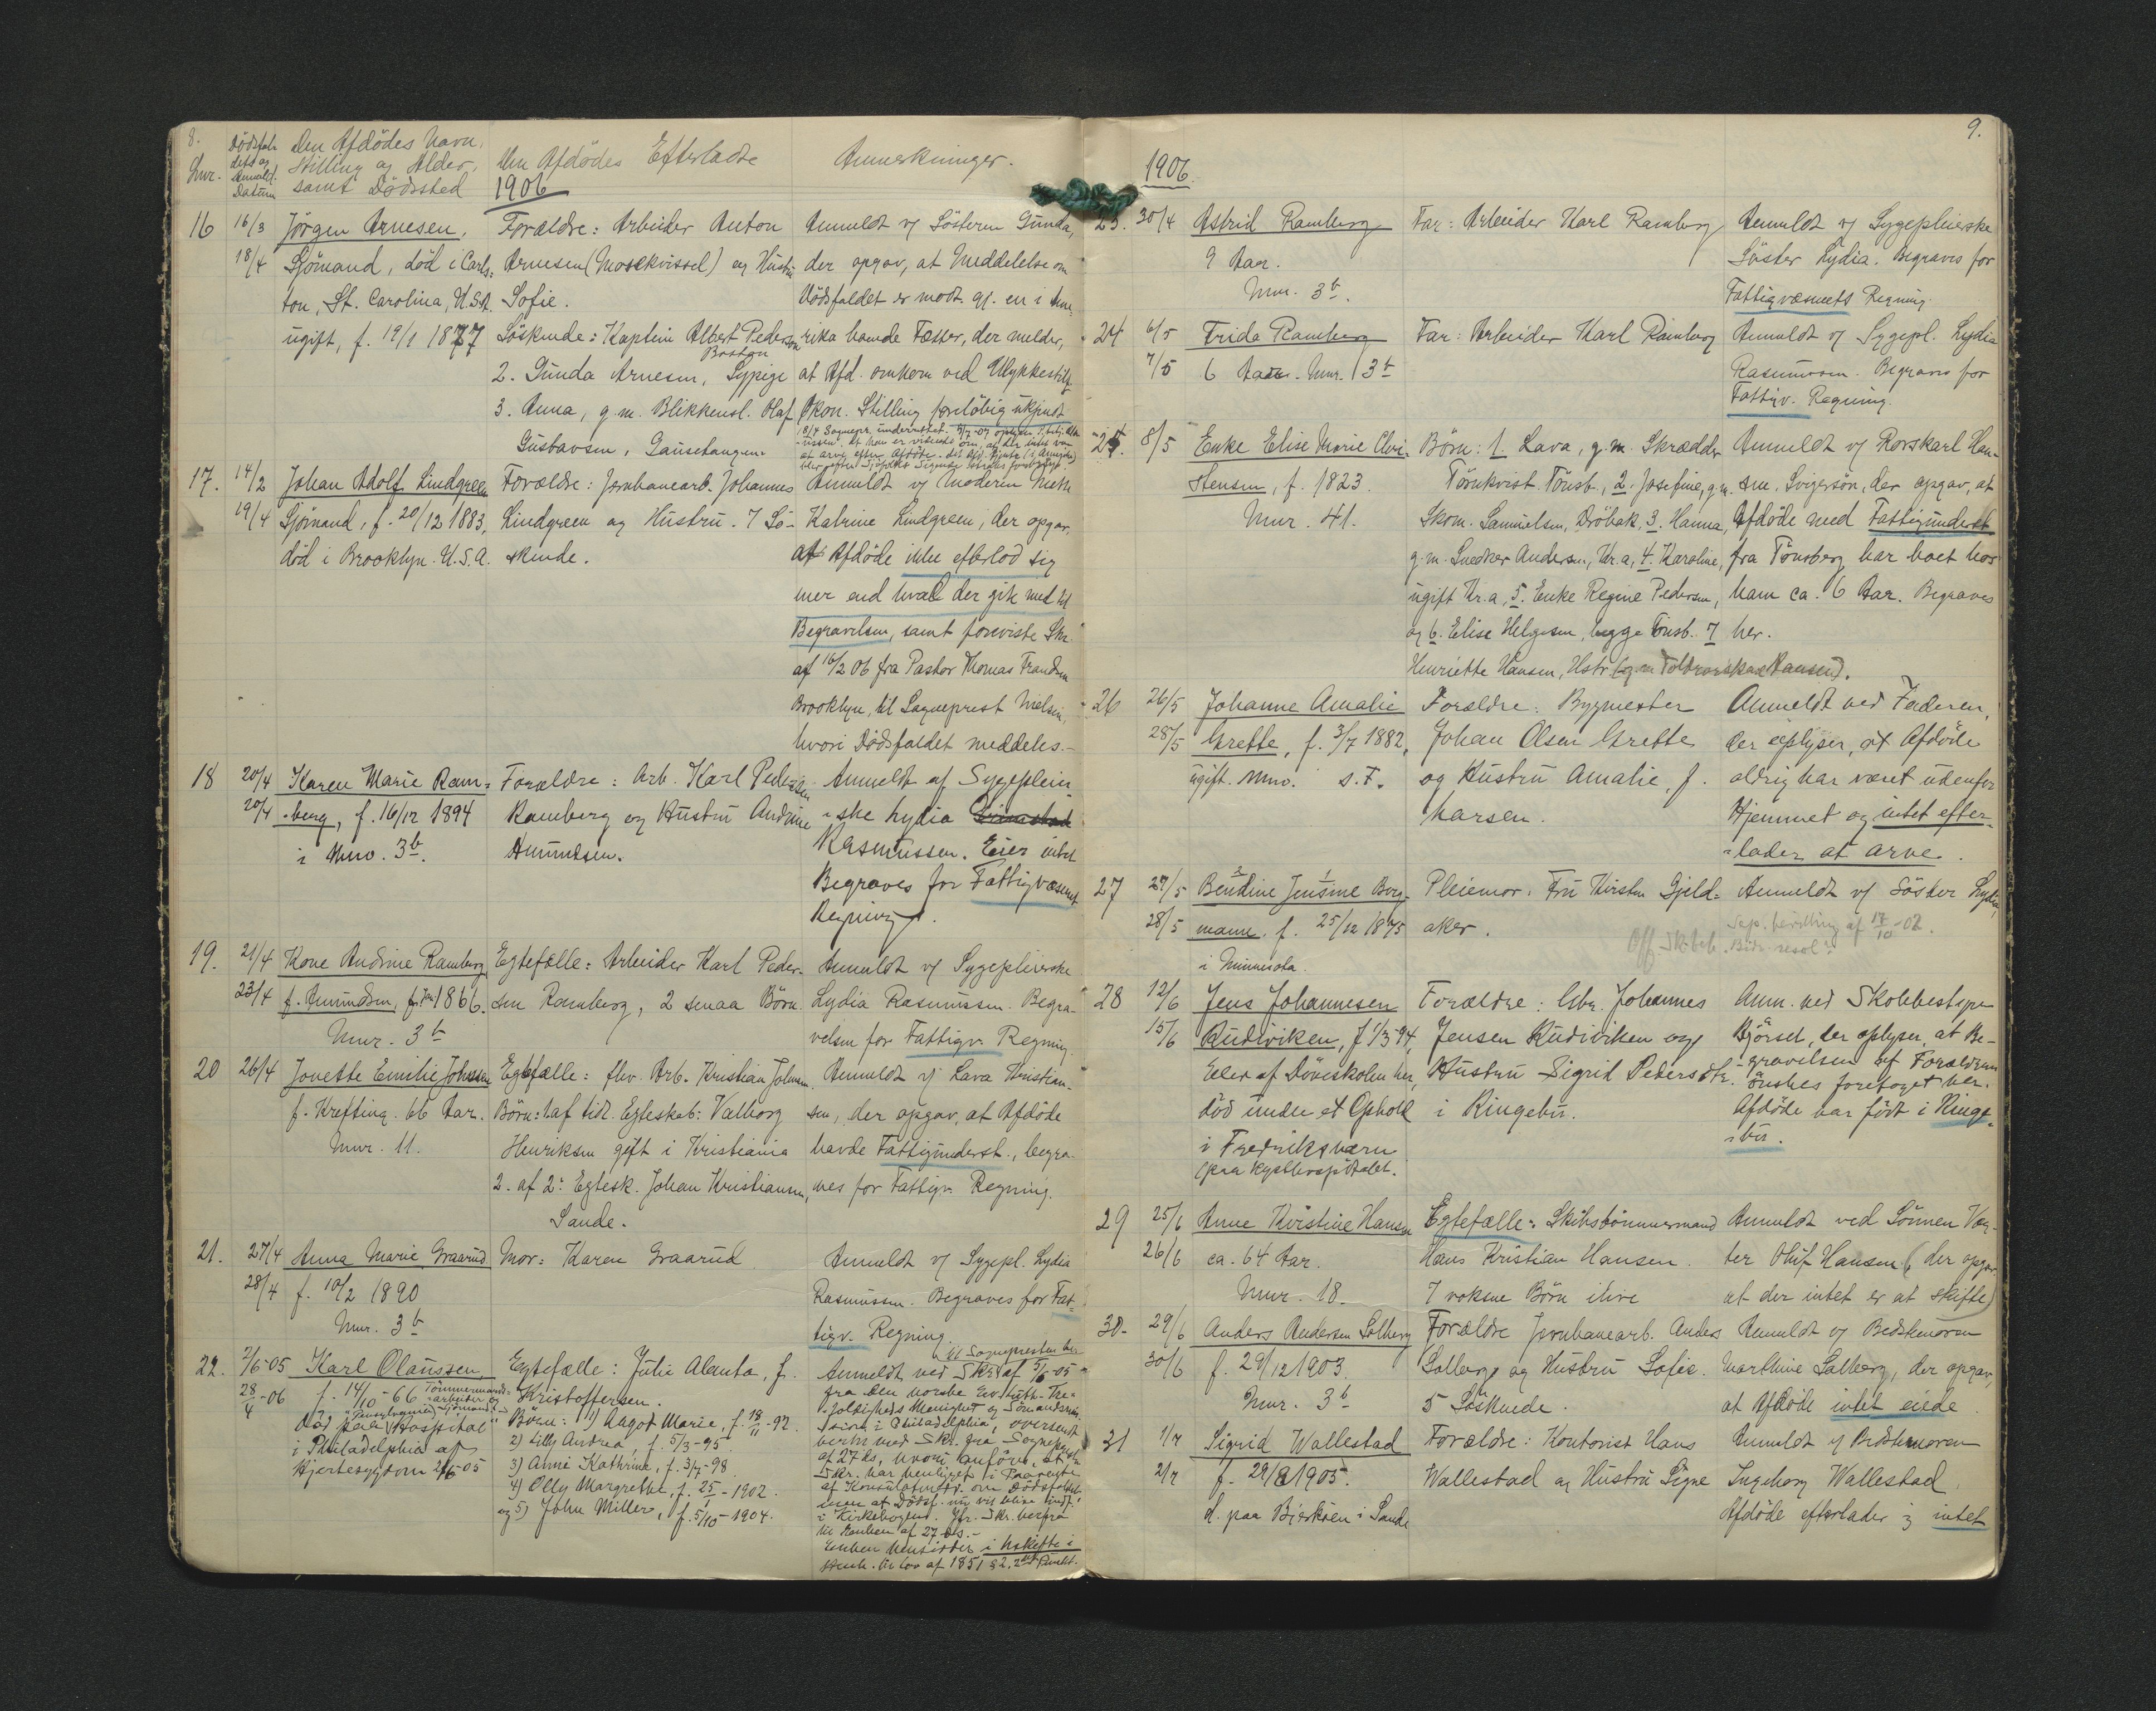 8.
Dödsfaldets og Anmeld. Datum
Den Afdödes Navn,
Stilling og Alder,
samt Dödssted
Den Afdödes Efterladte
Anmerkninger.
1906
16
16/3
18/4
Jörgen Arnesen,
Sjömand, död i Carls-
ton, St. Carolina, U.S.A.
ugift, f. 19/1 1877
Forældre: Arbeider Anton
Arnesen (Mosekvissel) og Hustru
Sofie.
Söskende: Kaptein Albert Pedersen
Boston
2. Gunda Arnesen, Sypige
3. Anna, g.m. Blikkensl. Olaf
Gustavsen, Gausetangen.
Anmeldt v/ Sösteren Gunda,
der opgav, at Meddelelse om
Dödsfaldet er modt. gj. en i Ame-
rika boende Fætter, der melder,
at Afd. omkom ved Ulykkestilf.
Økon. Stilling foreløbig ukjendt
17.
14/2
19/4
Johan Adolf Lindgreen
Sjömand, f. 20/12 1883,
död i Brooklyn. U.S.A.
Forældre: Jernbanearb. Johannes
Lindgreen og Hustru. 7 Sö-
skende.
Anmeldt v/ Moderen Mette
Katrine Lindgreen, der opgav,
at Afdöde ikke efterlod sig
mer end hvad der gik med til
Begravelsen, samt foreviste Skr.
af 16/2 06 fra Pastor Thomas Frandsen
Brooklyn, til Sogneprest Nielsen,
hvori Dödsfaldet meddeles.-
18
20/4
20/4
Karen Marie Ram-
berg, f. 16/12 1894
i Mno. 3b.
Forældre: Arb. Karl Pedersen
Ramberg og Hustru Andrine
Amundsen.
Anmeldt af Sygepleier-
ske Lydia
Rasmussen. Eier intet
Begraves for Fattigvæsenets
Regning.
19.
21/4
23/4
Kone Andrine Ramberg
f. Amundsen, f. 1866.
Mnr. 3b
Egtefælle: Arbeider Karl Peder-
sen Ramberg, 2 smaa Börn.
Anmeldt v/ Sygepleierske
Lydia Rasmussen. Begra-
velsen for Fattigv. Regning.
20
26/4
Jonette Emilie Johnsen
f. Krefting. 66 Aar.
Mnr. 11.
Egtefælle: fhv. Arb. Kristian Johnsen.
Börn: 1 af tidl. Egteskab: Valborg
Henriksen gift i Kristiania
2. af 2. Egtesk. Johan Kristiansen,
Sande.
Anmeldt v/ Lava Kristian-
sen, der opgav, at Afdöde
havde Fattigunderst., begra-
ves for Fattigv. Regning.
21.
27/4
28/4
Anna Marie Graarud
f. 10/2 1890
Mnr. 3b
Mor: Karen Graarud
Anmeldt v/ Sygepl. Lydia
Rasmussen. Begraves for Fat-
tigv. Regning.
22.
2/6-05
28/4-06
Karl Olaussen,
f. 14/10-66 Tömmermand,
arbeider og Sjömand
Död paa "Pensylvania Hospital"
i Philadelphia af
Hjertesygdom 2/6-05
Egtefælle: Julie Alanta, f.
Kristoffersen.
Börn: 1) Aagot Marie, f. 18/11-92
2) Lilly Andrea, f. 5/3-95
3) Anni Kathrine, f. 3/7-98
4) Olly Margrethe, f. 25/1-1902.
og 5) John Miller, f. 5/10-1904.
til Sognepresten her
Anmeldt ved Skr. af 5/6-05
fra den norske Ev. luth. Tre-
foldigheds Menighed og Sömandsmis-
sion i Philadelphia, oversendt
hertil med Skr. fra Sognepresten
af 27 ds, hvori anföres, at
Skr. har henligget i Paavente
af Konsulatmedd. om Dödsfaldet
men at Dödsf. nu vil blive indf.
i Kirkebogen. Jfr. Skr. herfra
til Enken af 27 ds.-
Enken hensidder i uskiftet
Henh. til Lov af 1851 § 2, 2det Punkt.
9.
1906.
23.
30/4
Astrid Ramberg
9 Aar.
Mnr. 3b.
Far: Arbeider Karl Ramberg
Anmeldt v/ Sygepleierske
Söster Lydia. Begraves for
Fattigvæsenets Regning.
24
6/5
7/5
Frida Ramberg
6 Aar. Mnr. 3b
Far: Arbeider Karl Ramberg
Anmeldt v/ Sygepl. Lydia
Rasmussen. Begraves for
Fattigv. Regning.
25.
8/5
Enke Elise Marie Chri-
stensen, f. 1823.
Mnr. 41.
Börn: 1. Lava, g.m. Skrædder
Törnkvist Tönsb., 2. Josefine, g.m.
Skom. Samuelsen, Dröbak, 3. Hanna,
g.m. Snedker Andersen, Kr.a, 4. Karoline,
ugift Kr.a, 5. Enke Regine Pedersen,
og 6. Elise Helgesen, begge Tönsb. 7
Henriette Hansen, Hstr. (g.m. Toldrorskar Hansen).
Anmeldt v/ Rorskarl Han-
sen. Svigersön, der opgav, at
Afdöde med Fattigunderst.
fra Tönsberg har boet hos
ham ca. 6 Aar. Begraves
her.
26
26/5
28/5
Johanne Amalie
Grette, f. 3/7 1882,
ugift. Mno. S.F.
Forældre: Bygmester
Johan Olsen Grette
og Hustru Amalie, f.
Larsen.
Anmeldt ved Faderen,
der oplyser, at Afdöde
aldrig har været udenfor
Hjemmet og intet efter-
lader at arve.
27
27/5
28/5
Bendine Jensine Berg-
mann. f. 25/12 1875
i Minnesota.
Pleiemor: Fru Kirsten Gjeld-
aker.
Anmeldt v/ Söster Lydia,
Sep. bevilling af 17/10-02.
28
12/6
15/6
Jens Johannesen
Rudiviken, f 1/3-94,
Elev af Döveskolen her,
död under et Ophold
i Fredriksværn
(paa Kysthospitalet.
Forældre: Gbr. Johannes
Jensen Rudiviken og
Hustru Sigrid Pedersdtr.
i Ringebu.
Anm. ved Skolebestyrer
Björset, der oplyser, at Be-
gravelsen af Forældrene
önskes foretaget her.
Afdöde var födt i Ringe-
bu.
29
25/6
26/6
Anne Kristine Hansen
ca. 64 Aar.
Mnr. 18.
Egtefælle: Skibstömmermand
Hans Kristian Hansen.
7 voksne Börn ilive
Anmeldt ved Sönnen Væg-
ter Oluf Hansen (der opgav
at der intet er at skifte)
30.
29/6
30/6
Anders Andersen Solberg
f. 29/12 1903.
Mnr. 3b
Forældre Jernbanearb. Anders
Solberg og Hustru Sofie.
5 Söskende.
Anmeldt v/ Bedstemoren
Marthine Solberg, der opgav,
at Afdöde intet eiede
31
1/7
2/7
Sigrid Wallestad
f. 29/8 1905.
d. paa Bjerköen i Sande
Forældre: Kontorist Hans
Wallestad og Hustru Signe
Anmeldt v/ Bedstemoren
Ingeborg Wallestad.
Afdöde efterlader sig intet